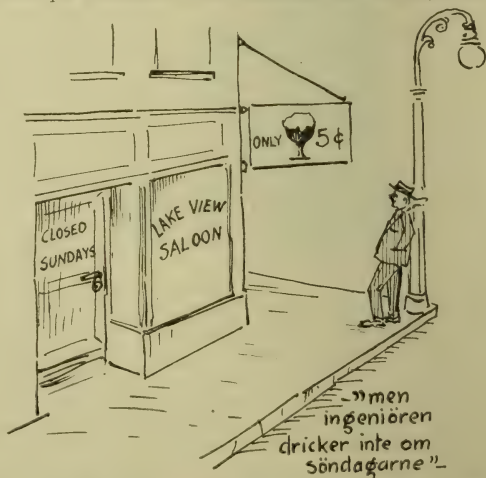 ONLY 5¢
CLOSED
SUNDAYS
LAKE VIEW
SALOON
-"men
ingeniören
dricker inte om
söndagarne"-